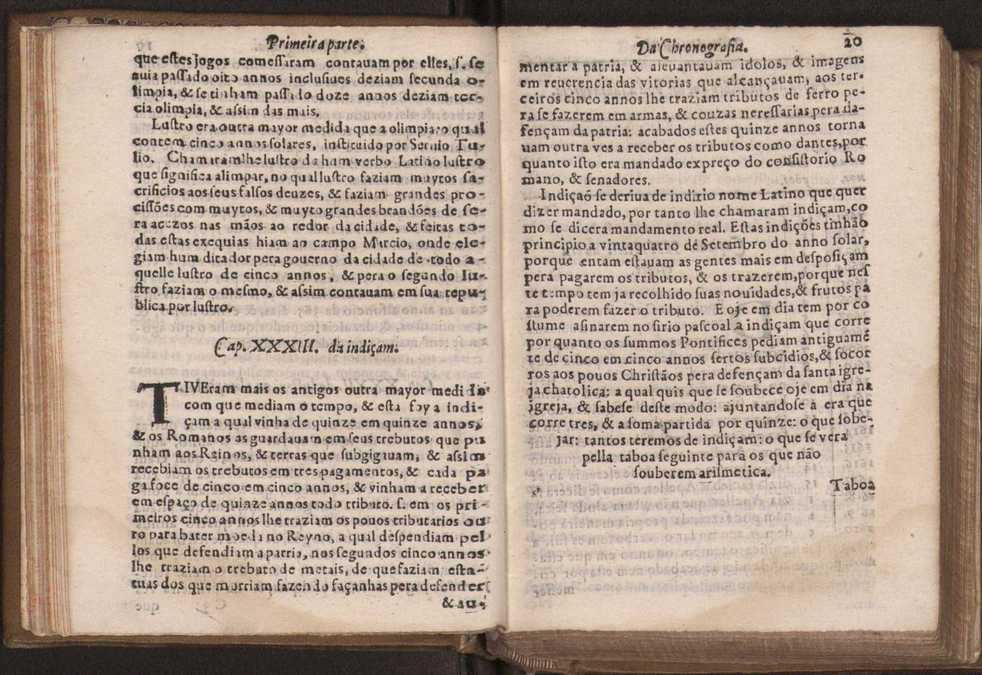 Primeira parte.
que estes jogos comessaram contauam por elles, s. se
auia passado oito annos inclusiues deziam secunda o-
limpia, & se tinham passado doze annos deziam ter-
cia olimpia, & assim das mais.
Lustro era outra mayor medida que a olimpia o qual
contem cinco annos solares, instituido por Seruio Tu-
lio. Chamaramlhe lustro da hum verbo Latino lustro
que significa alimpar, no qual lustro faziam muytos sa-
crificios aos seus falsos deuzes, & faziam grandes pro-
cissões com muytos, & muyto grandes brandões de se-
ra acezos nas mãos ao redor da cidade, & feitas to-
das estas exequias hiam ao campo Murcio, onde ele-
giam hum ditador pera gouerno da cidade de todo a-
quelle lustro de cinco annos, & pera o segundo lu-
stro faziam o mesmo, & assim contauam em sua repu-
blica por lustro.
Cap. XXXIII. da indiçam.
TIVEram mais os antigos outra mayor medida
com que mediam o tempo, & esta foy a indi-
çam a qual vinha de quinze em quinze annos,
& os Romanos as guardauam em seus trebutos que pu
nham aos Reinos, & terras que subgigauam, & assim
recebiam os trebutos em tres pagamentos, & cada pa
ga foce de cinco em cinco annos, & vinham a receber
em espaço de quinze annos todo tributo. s. em os pri-
meiros cinco annos lhe traziam os pouos tributarios ou
ro para bater moeda no Reyno, a qual despendiam pel
los que defendiam a patria, nos segundos cinco annos
lhe traziam o trebuto de metais, de que faziam esta-
tuas dos que morriam fazendo façanhas pera defender
& au-
Da Chronografia.
20
mentar a patria, & aleuantauam idolos, & imagens
em reuerencia das vitorias que alcançauam, aos ter-
ceiros cinco annos lhe traziam tributos de ferro pe-
ra se fazerem em armas, & couzas neressarias pera da-
fençam da patria: acabados estes quinze annos torna
uam outra ves a receber os tributos como dantes, por
quanto isto era mandado expreço do consistorio Ro
mano, & senadores.
Indiçaõ se deriua de indirio nome Latino que quer
dizer mandado, por tanto lhe chamaram indiçam, co
mo se dicera mandamento real. Estas indições tinhão
principio a vinta quatro de Setembro do anno solar,
porque entam estauam as gentes mais em desposiçam
pera pagarem os tributos, & os trazerem, porque nes
te tempo tem ja recolhido suas nouidades, & frutos pa
ra poderem fazer o tributo. E oje em dia tem por co
stume asinarem no sirio pascoal a indiçam que corre
por quanto os summos Pontifices pediam antiguamé
te de cinco em cinco annos sertos subcidios, & socor
ros aos pouos Christãos pera defençam da santa igre-
ja chatolica: a qual quis que se soubece oje em dia na
igreja, & sabese deste modo: ajuntandose à era que
corre tres, & a soma partida por quinze: o que sobe-
jar: tantos teremos de indiçam: o que se vera
pella taboa seguinte para os que não
souberem arismetica.
Taboa